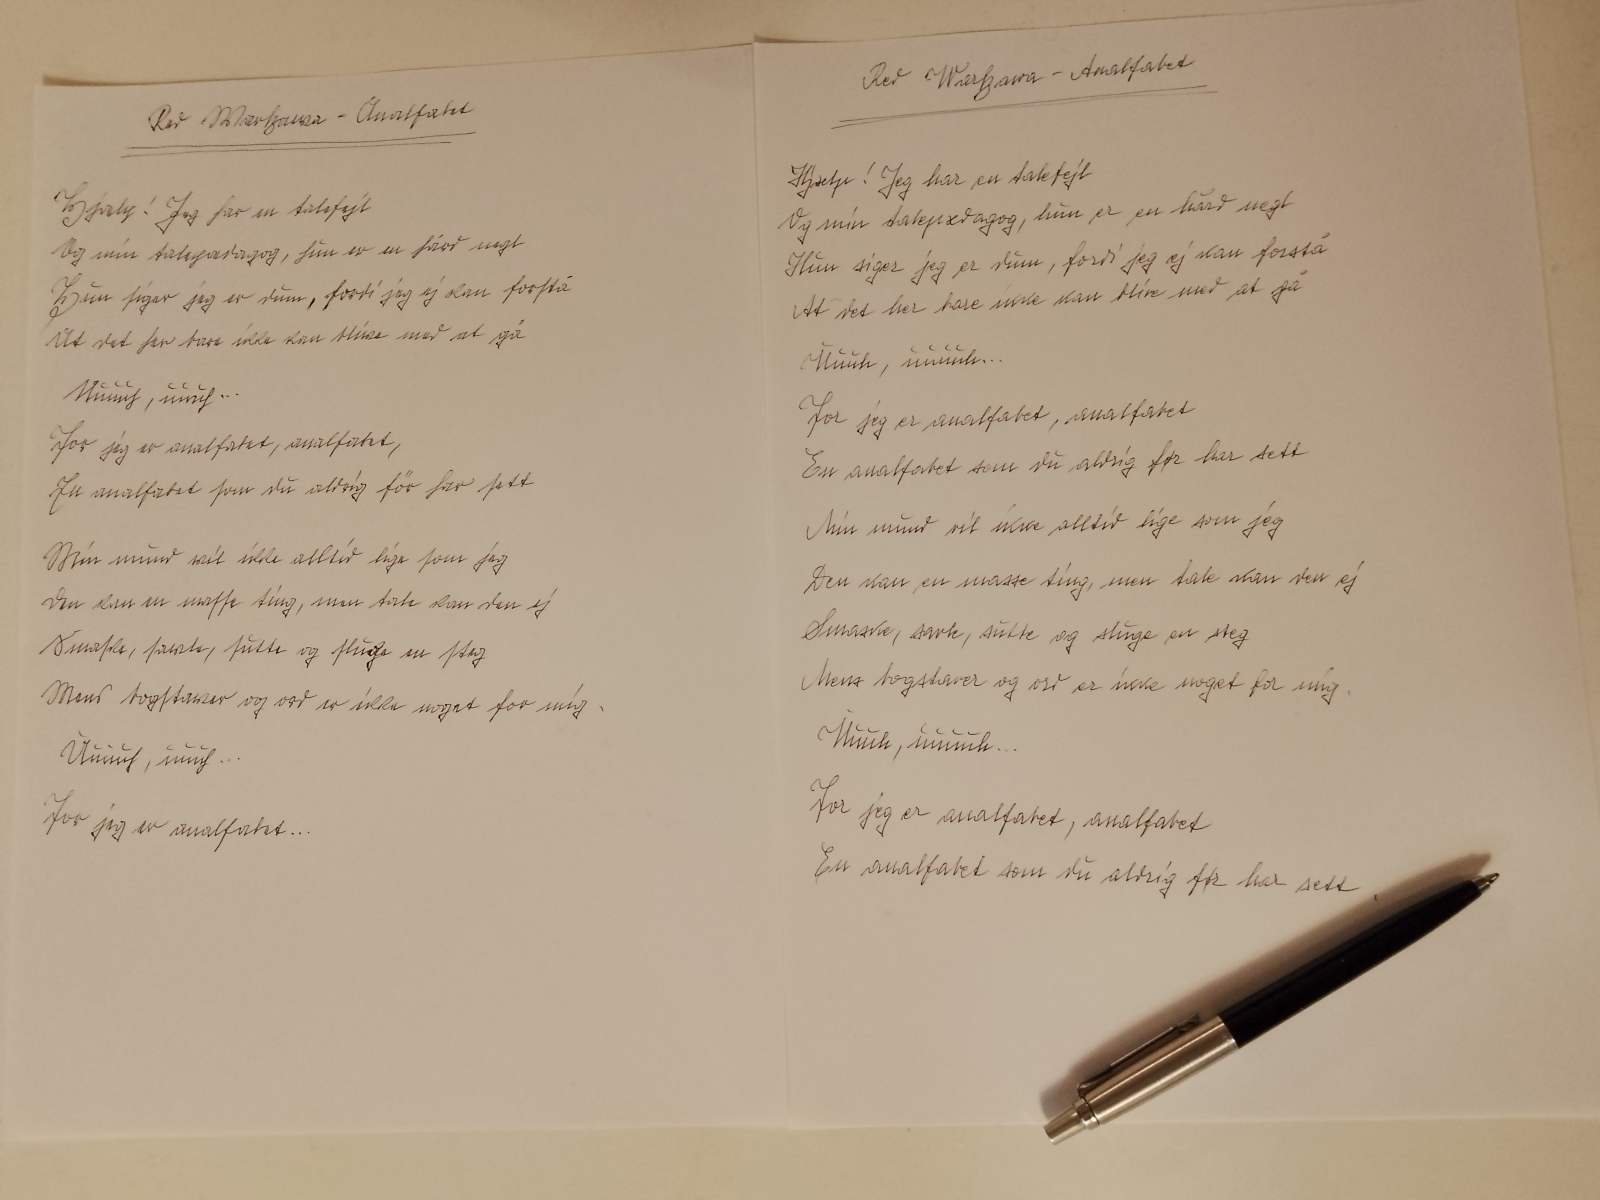 Red Warszawa - Analfabet
Hjælp! Jeg har en talefejl
Og min talepædagog, hun er en hård negl
Hun siger jeg er dum, fordi jeg ej kan forstå
At det her bare ikke kan blive med at gå
Uuuuh, uuuh...
For jeg er analfabet, analfabet,
En analfabet som du aldrig för har sett
Min mund wil ikke alltid lige som jeg
Den kan en masse ting, men tale kan den ej
Smaske, sawle, sutte og sluge en steg
Mens bogstawer og ord er ikke noget for mig.
Uuuuh, uuuh...
For jeg er analfabet...
Red Warszawa - Analfabet
Hjælp! Jeg har en talefejl
Og min talepædagog, hun er en hård negl
Hun siger jeg er dum, fordi jeg ej kan forstå
At det her bare ikke kan blive med at gå
Uuuh, uuuuuh...
For jeg er analfabet, analfabet
En analfabet som du aldrig før har sett
Min mund vil ikke alltid lige som jeg
Den kan en masse ting, men tale kan den ej
Smaske, savle, sutte og sluge en steg
Mens bogstaver og ord er ikke noget for mig.
Uuuh, uuuuuh...
For jeg er analfabet, analfabet
En analfabet som du aldrig før har sett